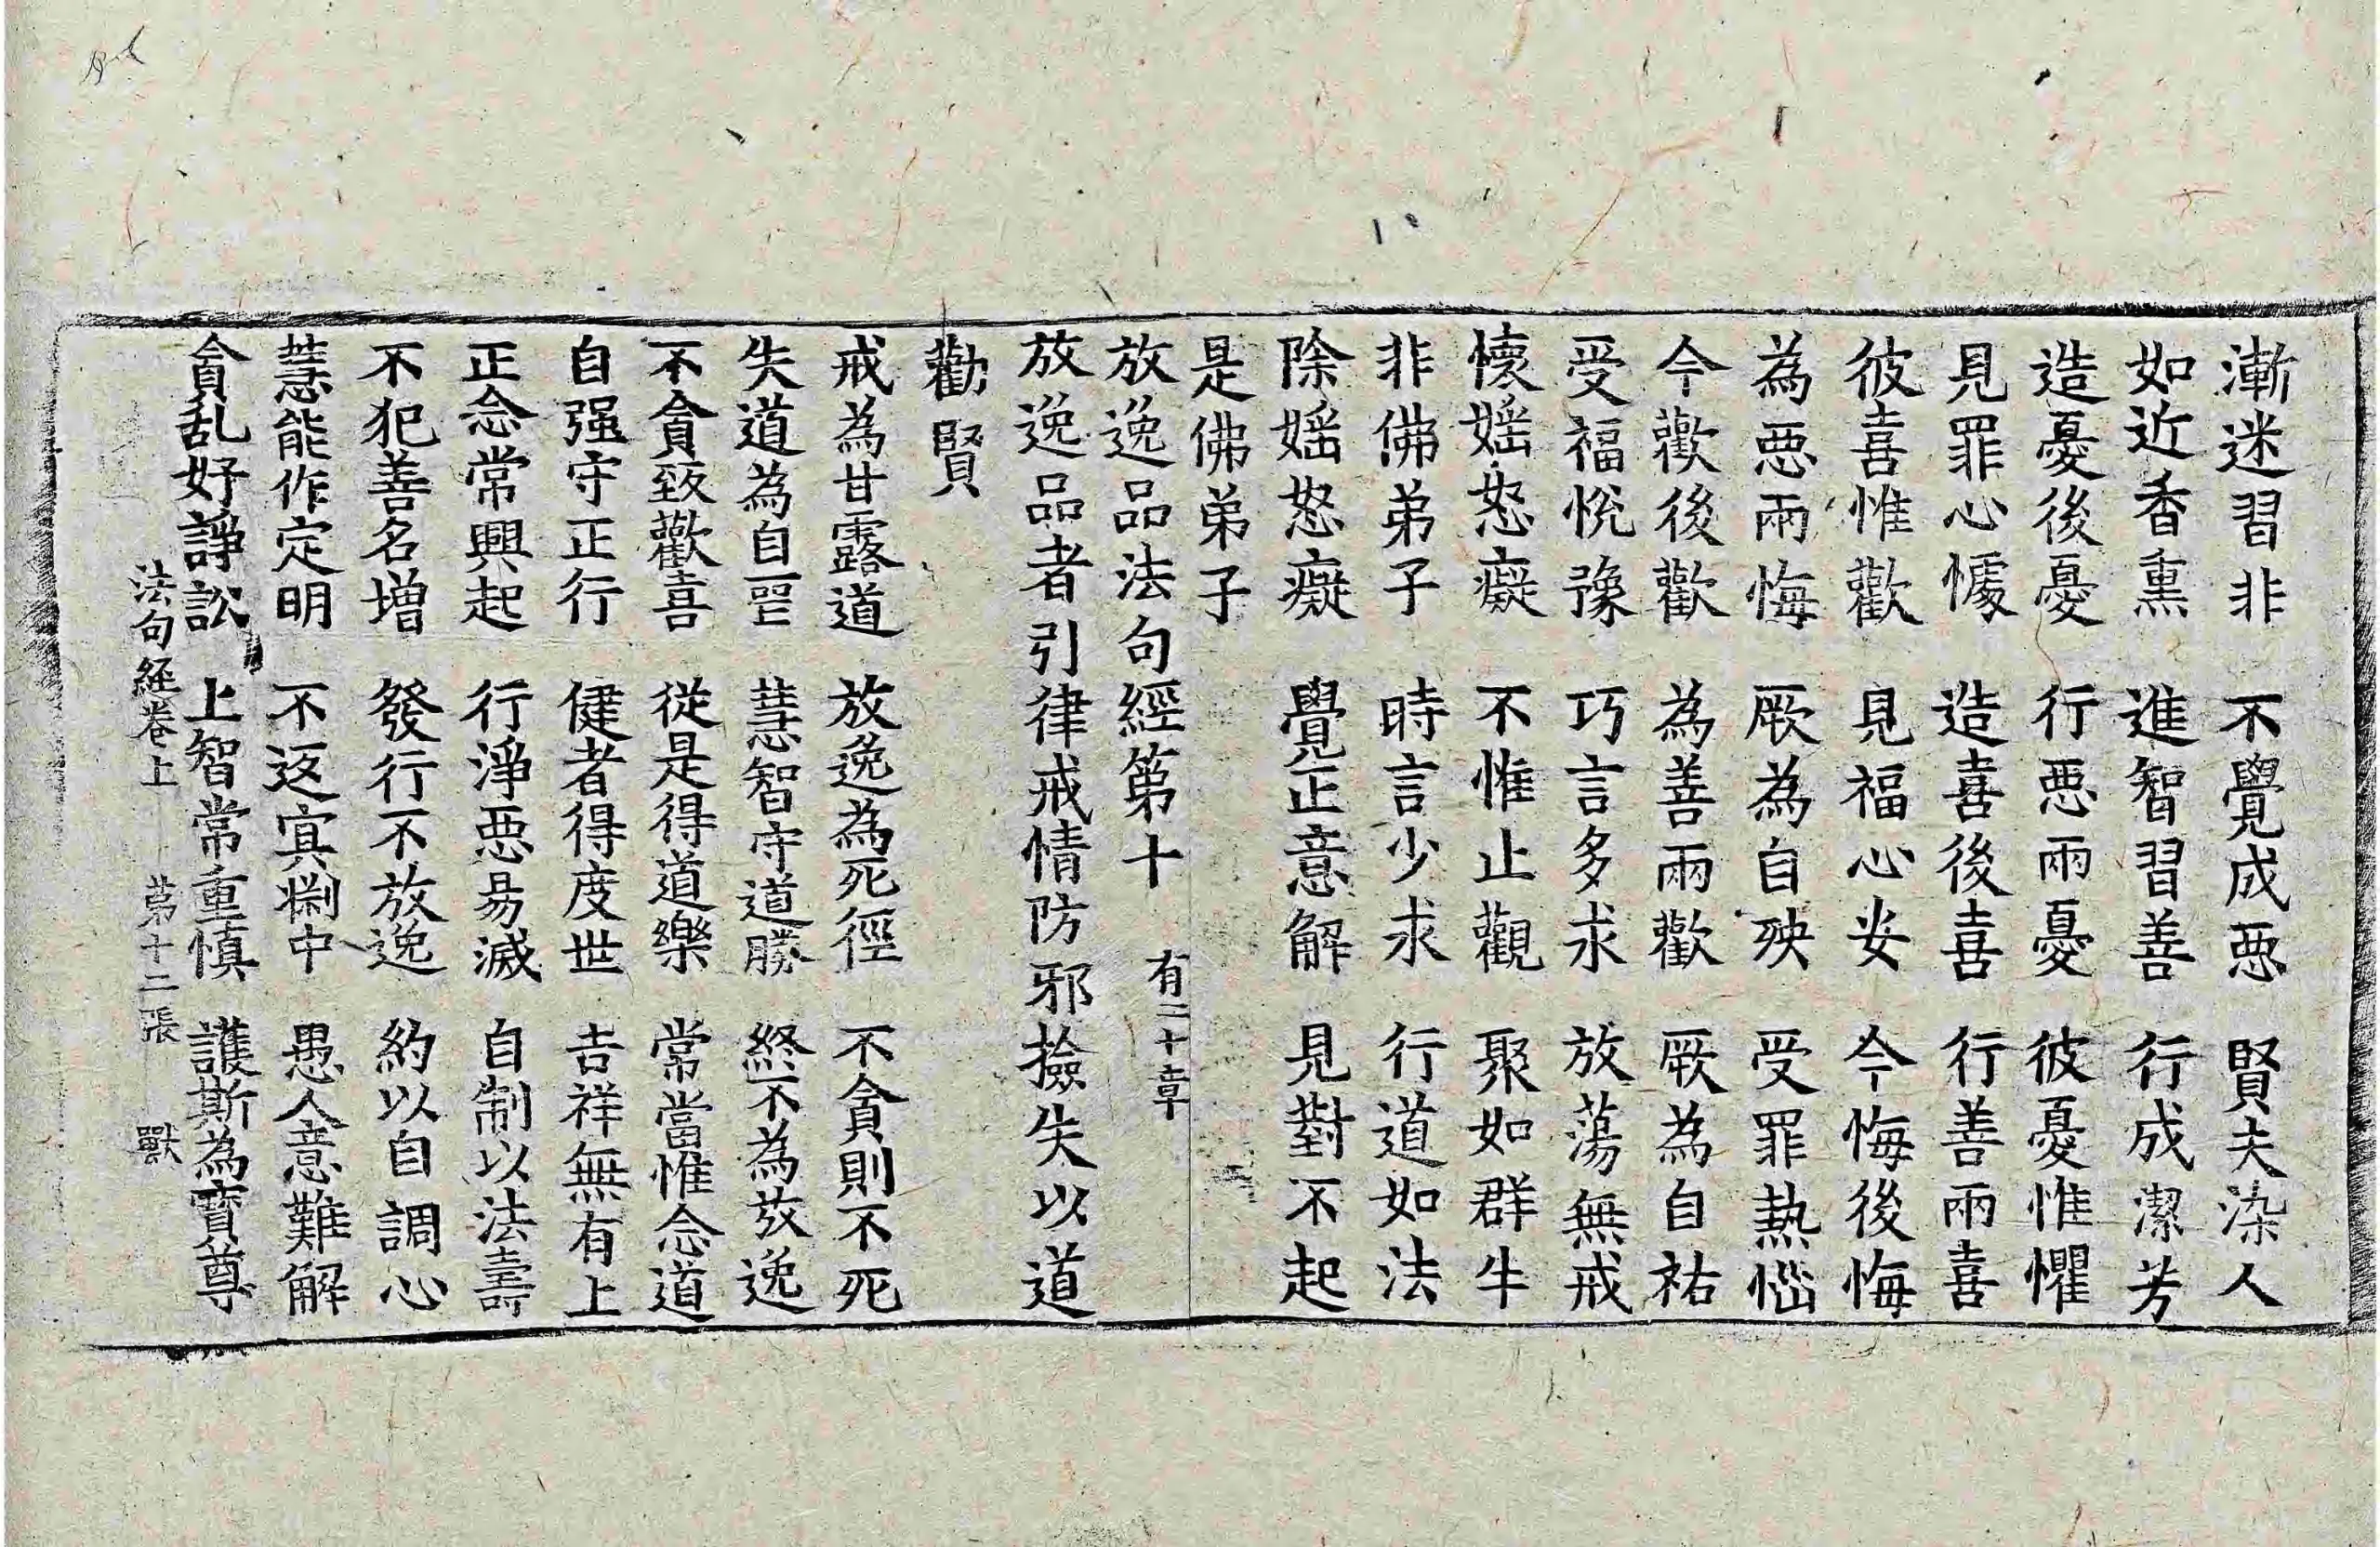 漸迷習非　不覺成惡　賢夫染人
如近香熏　進智習善　行成潔芳
造憂後憂　行惡兩憂　彼憂惟懼
見罪心懅　造喜後喜　行善兩喜
彼喜惟歡　見福心安　今悔後悔
為惡兩悔　厥為自殃　受罪熱惱
今歡後歡　為善兩歡　厥為自祐
受福悅豫　巧言多求　放蕩無戒
懷婬怒癡　不惟止觀　聚如群牛
非佛弟子　時言少求　行道如法
除婬怒癡　覺正意解　見對不起
是佛弟子
放逸品法句經第十　有二十章
放逸品者引律戒情防邪撿失以道
勸賢
戒為甘露道　放逸為死徑　不貪則不死
失道為自喪　慧智守道勝　終不為放逸
不貪致歡喜　從是得道樂　常當惟念道
自强守正行　健者得度世　吉祥無有上
正念常興起　行淨惡易滅　自制以法壽
不犯善名增　發行不放逸　約以自調心
慧能作定明　不返冥淵中　愚人意難解
貪乱好諍訟　上智常重慎　護斯為寶尊
法句經卷上　第十二張　獸